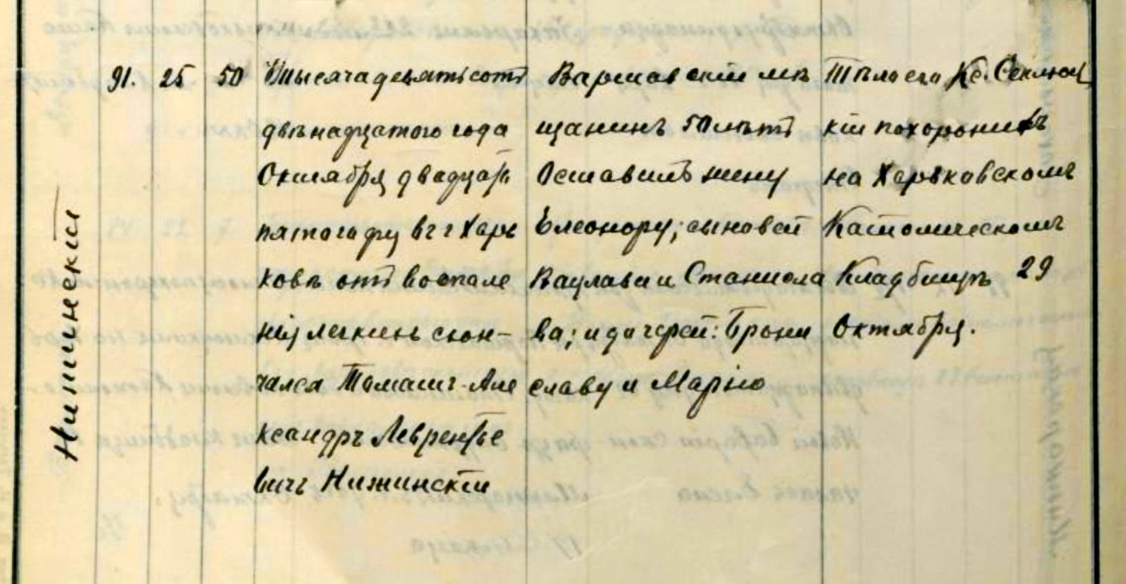 Нижинский
91. 25 50 Тысяча девятьсотъ
двѣнадцатого года
Октября двадцать
пятого дня въ г. Харь
ковѣ отъ воспале
нія легкихъ скон-
чался Томашъ-Але
ксандръ Лаврентье
вичъ Нижинскій
Варшавскій мѣ
щанинъ 50 лѣтъ
Оставилъ жену
Елеонору; сыновей
Вацлава и Станисла
ва; и дочерей: Брони
славу и Марію
Тѣло его Кс.
кій похоронилъ
на Харьковскомъ
Католическомъ
Кладбищѣ 29
Октября.